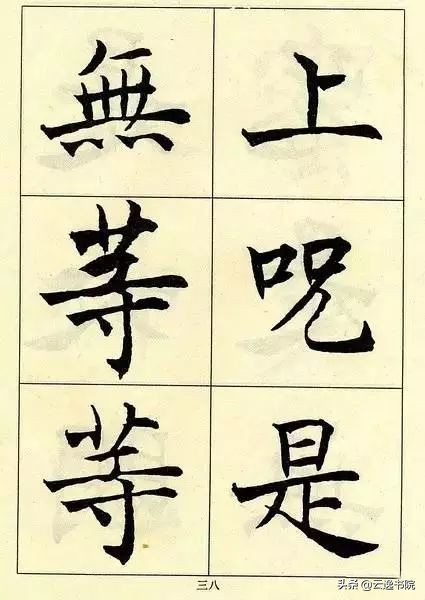 上咒是
無等等
三八
头条 @云逸书院